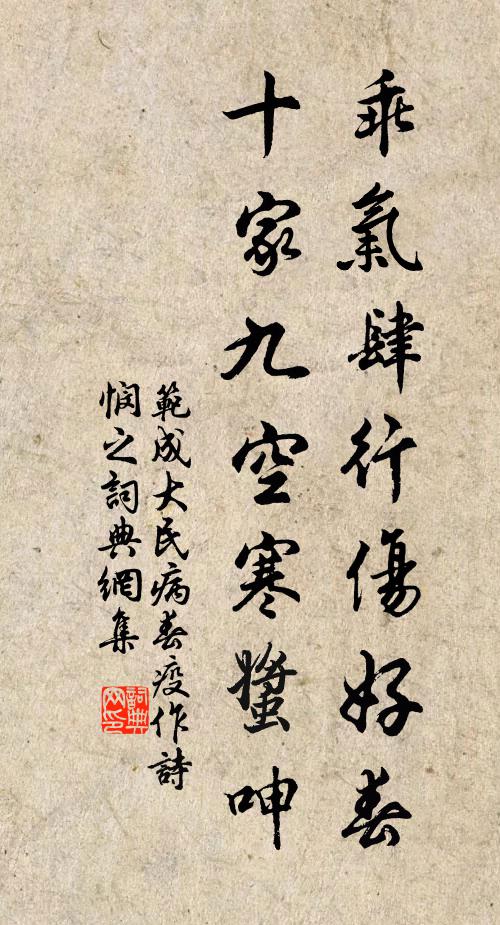 乖氣肆行傷好春
十家九空寒螿呻
範成大民病春疫作詩
憫之詞典網集
詞典
网印